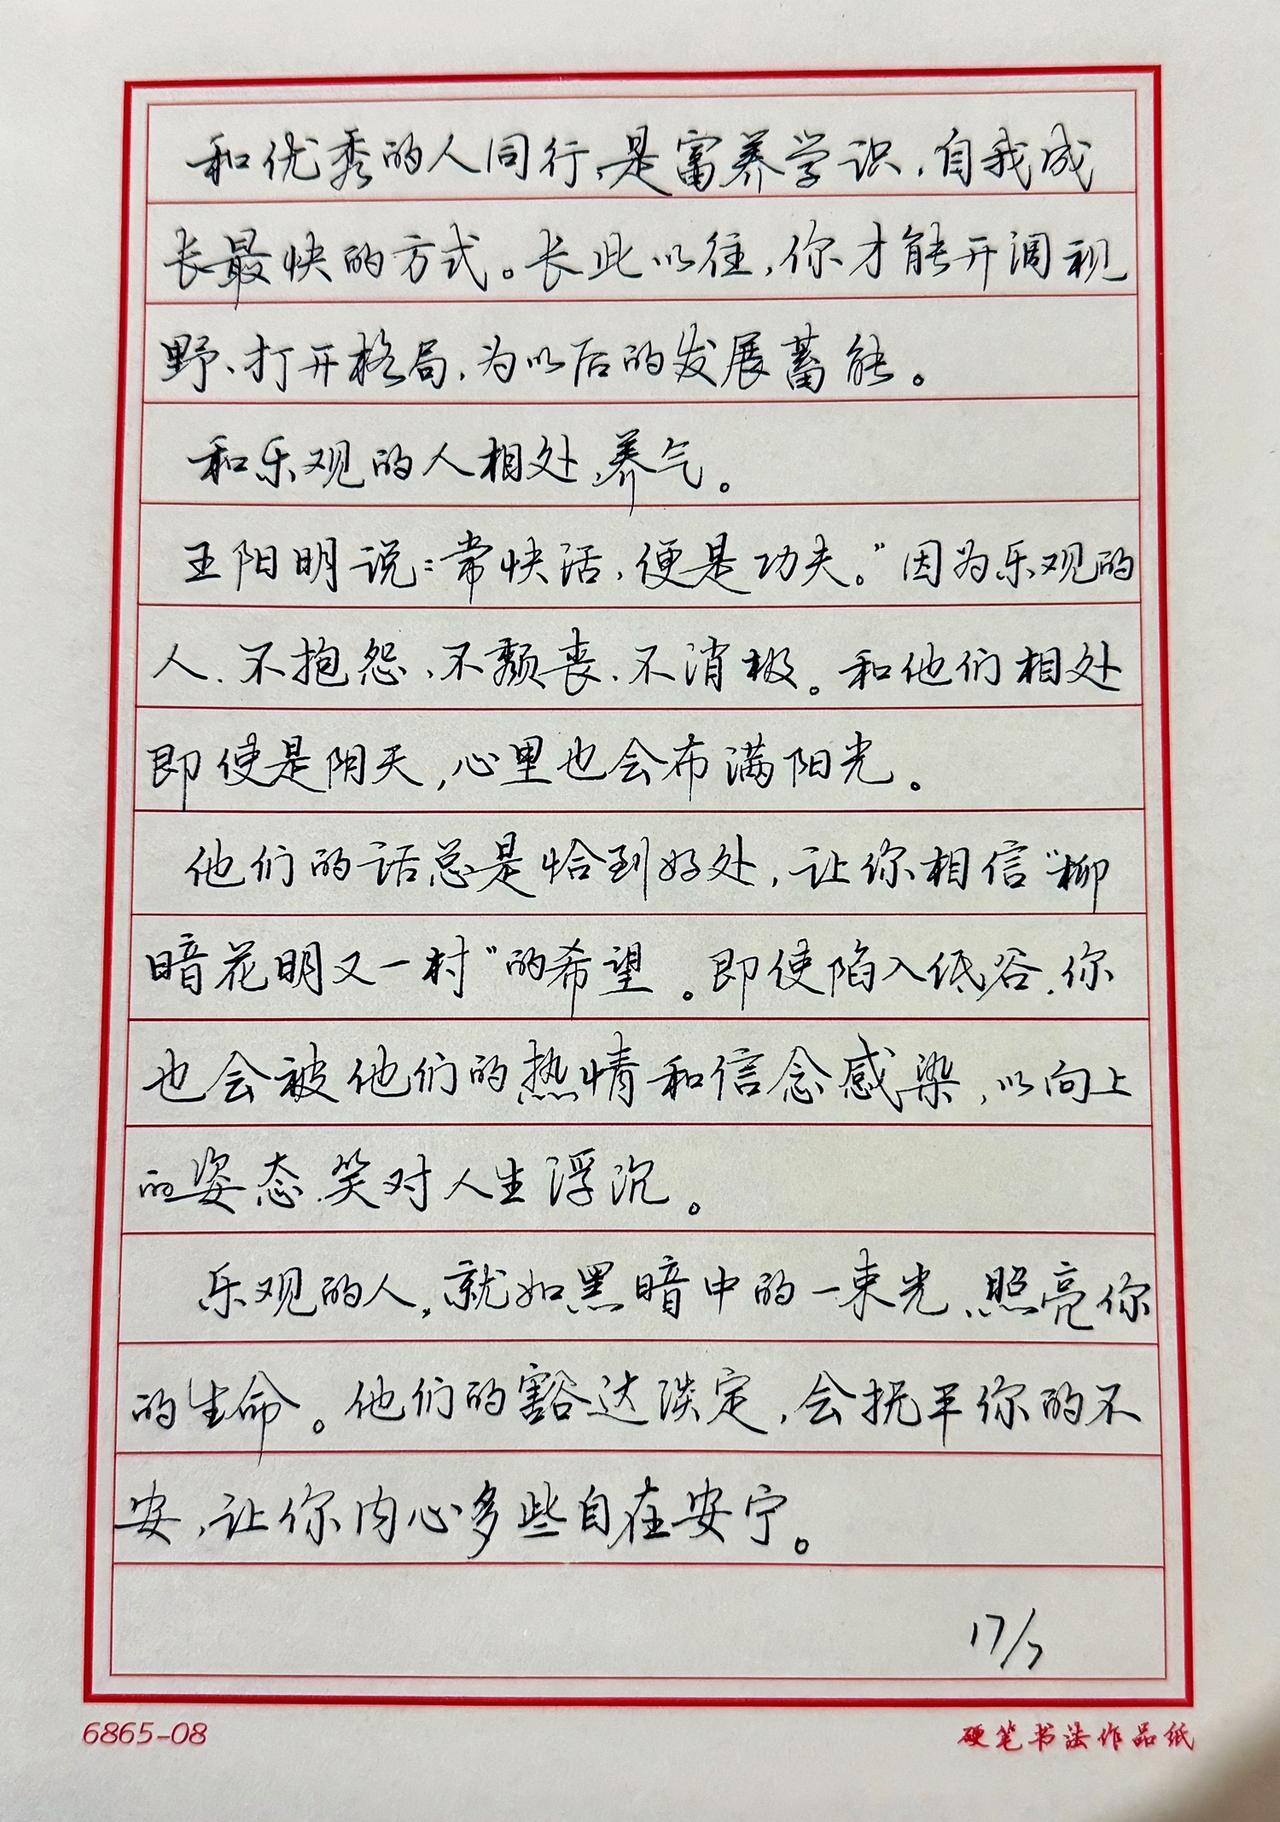 和优秀的人同行,是富养学识,自我成
长最快的方式。长此以往,你才能开阔视
野、打开格局,为以后的发展蓄能。
和乐观的人相处,养气。
王阳明说:常快活,便是功夫。"因为乐观的
人、不抱怨、不颓丧、不消极。和他们相处
即使是阴天,心里也会布满阳光。
他们的话总是恰到好处,让你相信"柳
暗花明又一村"的希望。即使陷入低谷,你
也会被他们的热情和信念感染,以向上
的姿态,笑对人生浮沉。
乐观的人,就如黑暗中的一束光,照亮你
的生命。他们的豁达淡定,会抚平你的不
安,让你内心多些自在安宁。
17/7
6865-08 硬笔书法作品纸